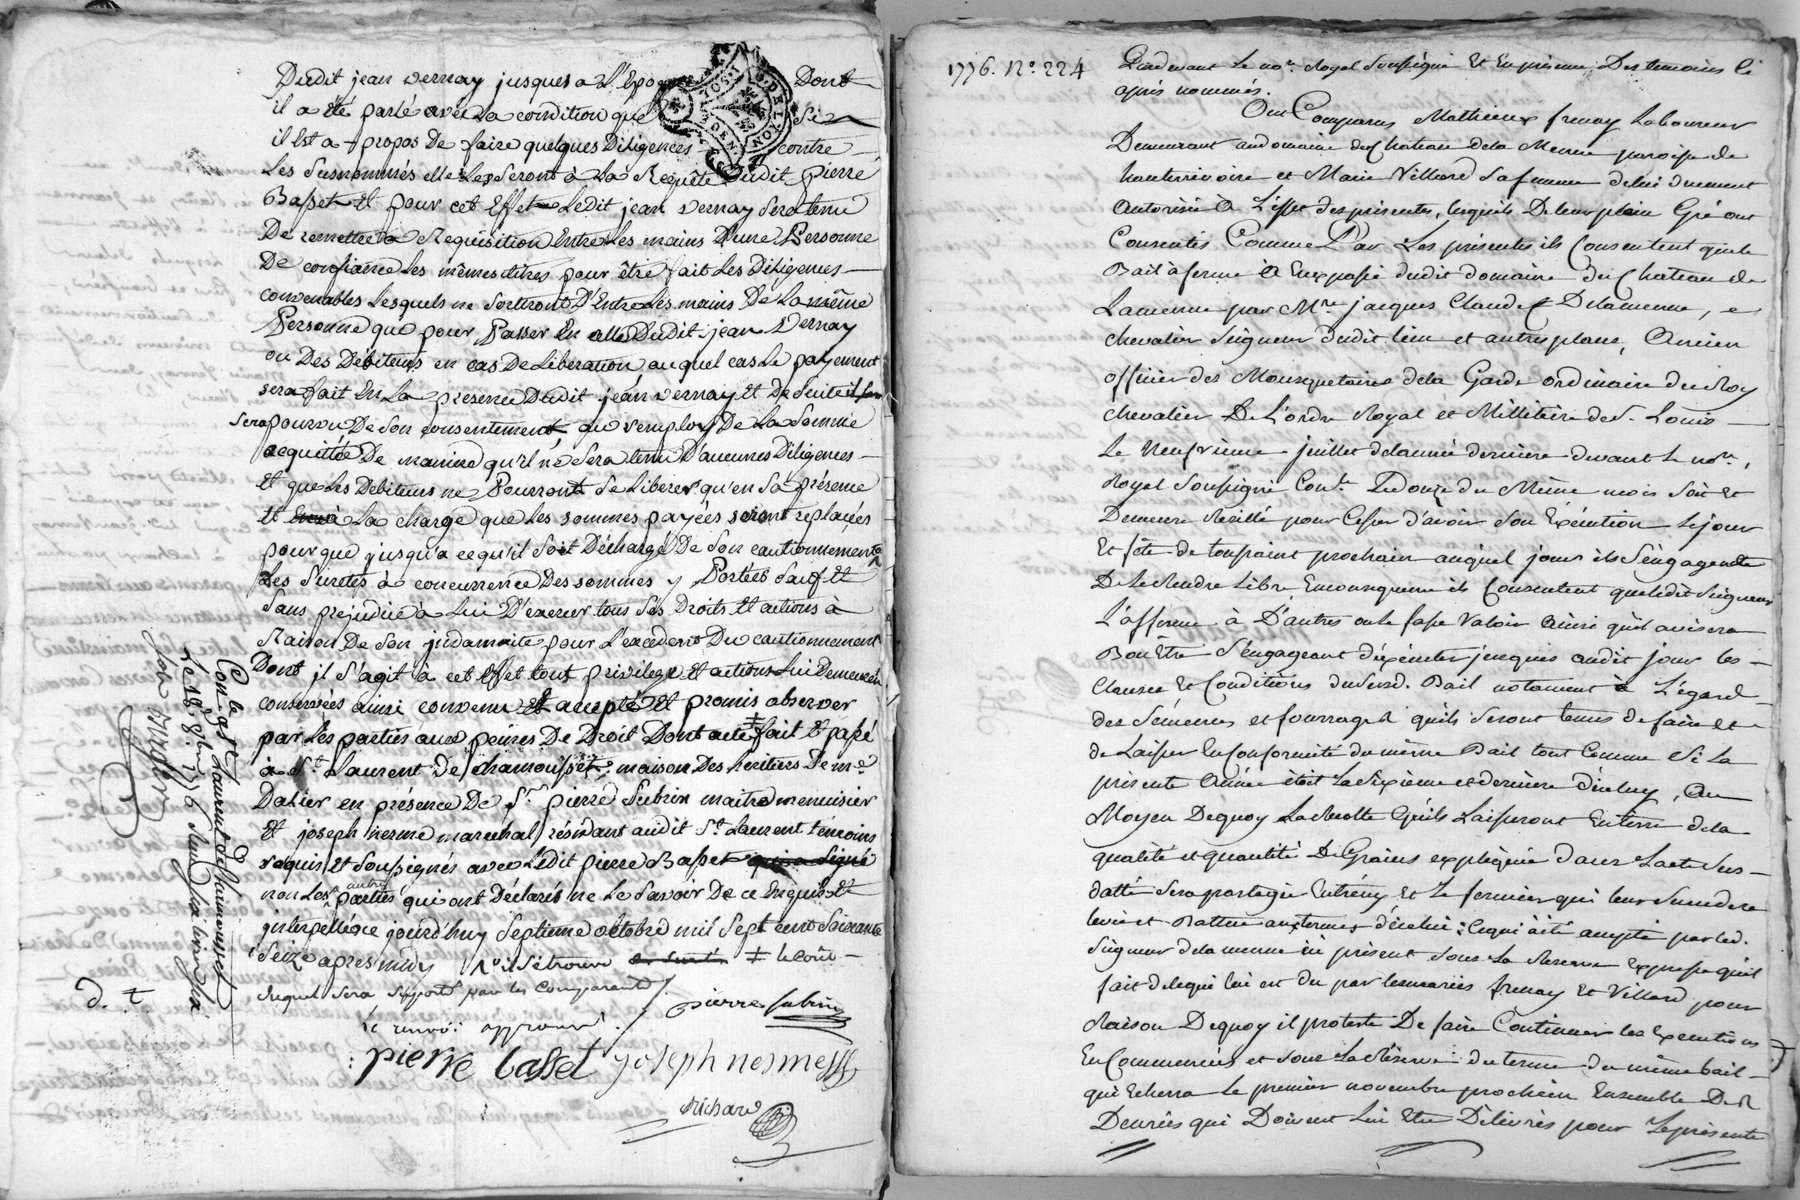 Dudit jean vernay jusques a L'Epoque Dont
il a été parlé avec La condition que Si
il Est a propos De faire quelques Diligences contre
Les Susnommés elle Les Seront a La Requête Dudit pierre
Basset Et pour cet Effet Ledit jean vernay Sera tenu
De remettre a Requisition Entre Les mains D'une Personne
De confiance Les mêmes titres pour être fait Les Diligences
convenables Lesquels ne Sortiront D'Entre Les mains De La même
Personne que pour Passer En celles Dudit jean Vernay
ou Des Débiteurs en cas De Libération auquel cas Le payement
sera fait En La presence Dudit jean vernay Et De Suite il
Sera pourvu De Son consentement au remploy De La Somme
acquittée De maniere qu'il ne Sera tenu D'aucunes Diligences
Et que Les Debiteurs ne Pourront Se Liberer qu'en Sa présence
Et a La charge que Les sommes payées seront replacées
pour que jusqu'a ce qu'il Soit Déchargé De Son cautionnement
Les Suretés à concurrence Des sommes y Portées Sauf Et
Sans préjudice a Lui D'exercer tous Ses Droits Et actions à
Raison De Son indamnité pour L'excedent Du cautionnement
Dont il S'agit à cet Effet tout privilege Et actions Lui Demeurent
conservées ainsi convenu Et accepté Et promis observer
par Les parties aux peines De Droit Dont acte ‡ fait Et passé
à St. Laurent De chamousset maison Des héritiers De me
Dalier en présence De Sr. pierre Subrin maitre menuisier
Et joseph nesme maréchal résidant audit St. Laurent témoins
requis Et Soussignés avec Ledit pierre Basset qui a Signé
non Les autres parties qui ont Déclarés ne Le Savoir De ce Enquis Et
interpellées ce jourd'huy Septieme octobre mil Sept cent Soixante
Seize apres midy ‡ le coût
duquel Sera Supporté par les Comparants
le renvoi approuvé
pierre Subrin
pierre basset joseph nesme
Richard
Con. le a St Laurent de chamousset
Le 8. 8bre 1776
d. t.
1776. No. 224
Pardevant Le nore. Royal Soussigné Et En présence Des temoins Ci
après nommés.
Ont Comparus Mathieu frenay Laboureur
Demeurant au domaine du Chateau de la Menue paroisse de
hauterivoire et Marie Villard Sa femme de lui duement
Autorisée à L'effet des présentes, lesquels De leur plein Gré ont
Consentis Comme Par Les présentes ils Consentent que le
Bail à ferme à Eux passé dudit domaine du Chateau de
Lamenue par Mre. jacques Claude Delamenue,
chevalier Seigneur dudit lieu et autres places, Ancien
officier des Mousquetaires de la Garde ordinaire du Roy
chevalier De L'ordre Royal et Millitaire de St. Louis
Le Neufvieme juillet de l'année derniere devant Le nore.
Royal Soussigné Conlé. Le douze du Même mois Soit Et
Demeure Resillé pour Cesser d'avoir Son Exécution Le jour
Et fête de toussaint prochain auquel jour ils S'engagent
De Le Rendre Libre, En conséquence ils Consentent que ledit Seigneur
L'afferme à D'autres ou le fasse Valoir Ainsi qu'il avisera
Bon Etre S'engageant d'éxécuter jusques audit jour les
Clauses Et Conditions du Susd. Bail notament à L'égard
des Sémences et fourrages qu'ils Seront tenus de faire et
de Laisser En Conformité du même Bail tout Comme Si La
présente Année étoit La Sixieme et derniere d'icluy, Au
Moyen Dequoy La Recolte Qu'ils Laisseront En terre de la
qualité et quantité De Grains expliquée dans L'acte Sus
datté Sera partagée Entr'eux Et Le fermier qui leur Succedera
levée et Battue aux termes d'icelui; Ce qui à été accepté par led.
Seigneur de la menue ici présent Sous La Reserve Expresse qu'il
fait de Ce qui lui est Du par les mariés frenay Et Villard pour
Raison Dequoy il proteste De faire Continuer les Executions
En Commencées et Sous La Réserve du terme du même bail
qui Echerra le premier novembre prochain Ensemble Des
Denrées qui Doivent Lui Etre Délivrés pour Le présente